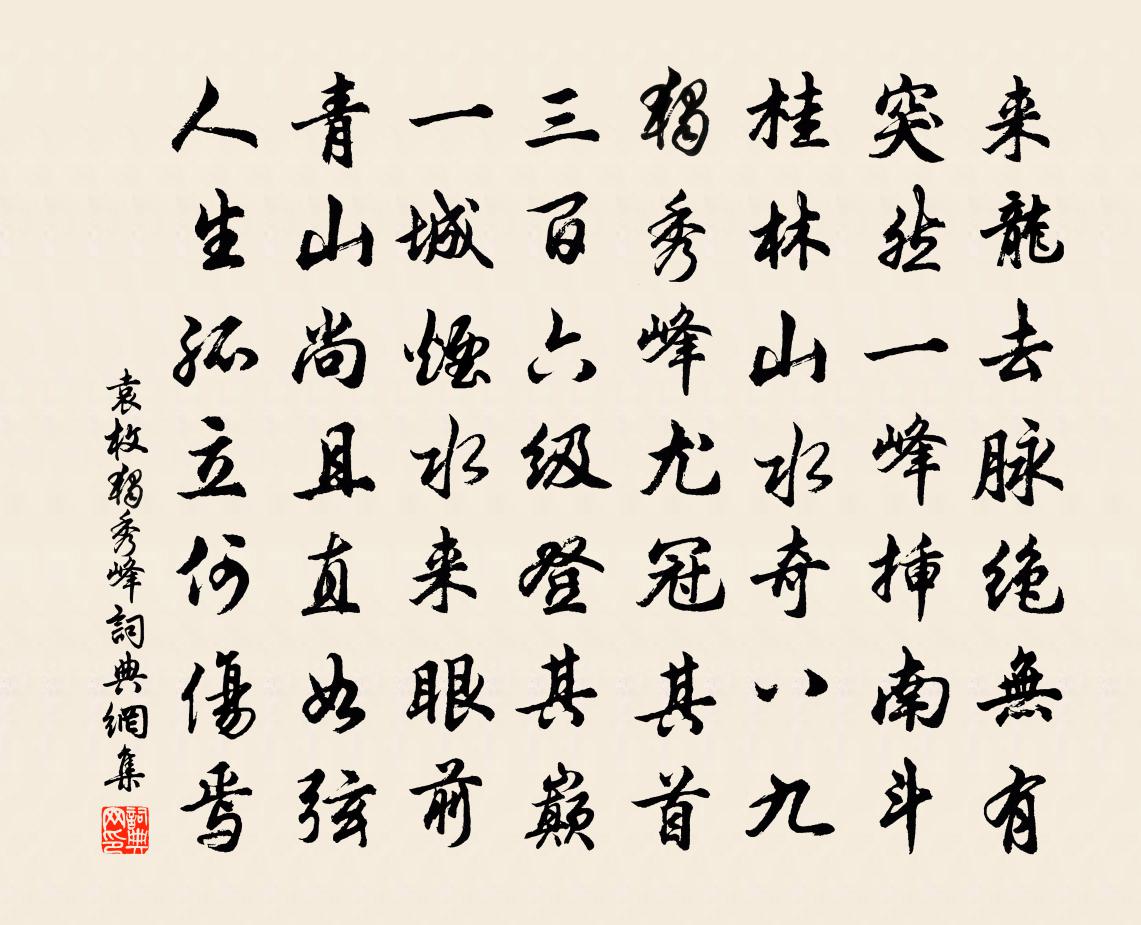 来龍去脉绝無有
突然一峰插南斗
桂林山水奇八九
獨秀峰尤冠其首
三百六级登其巅
一城煙水来眼前
青山尚且直如弦
人生孤立何傷焉
袁枚獨秀峰詞典網集
詞典網印